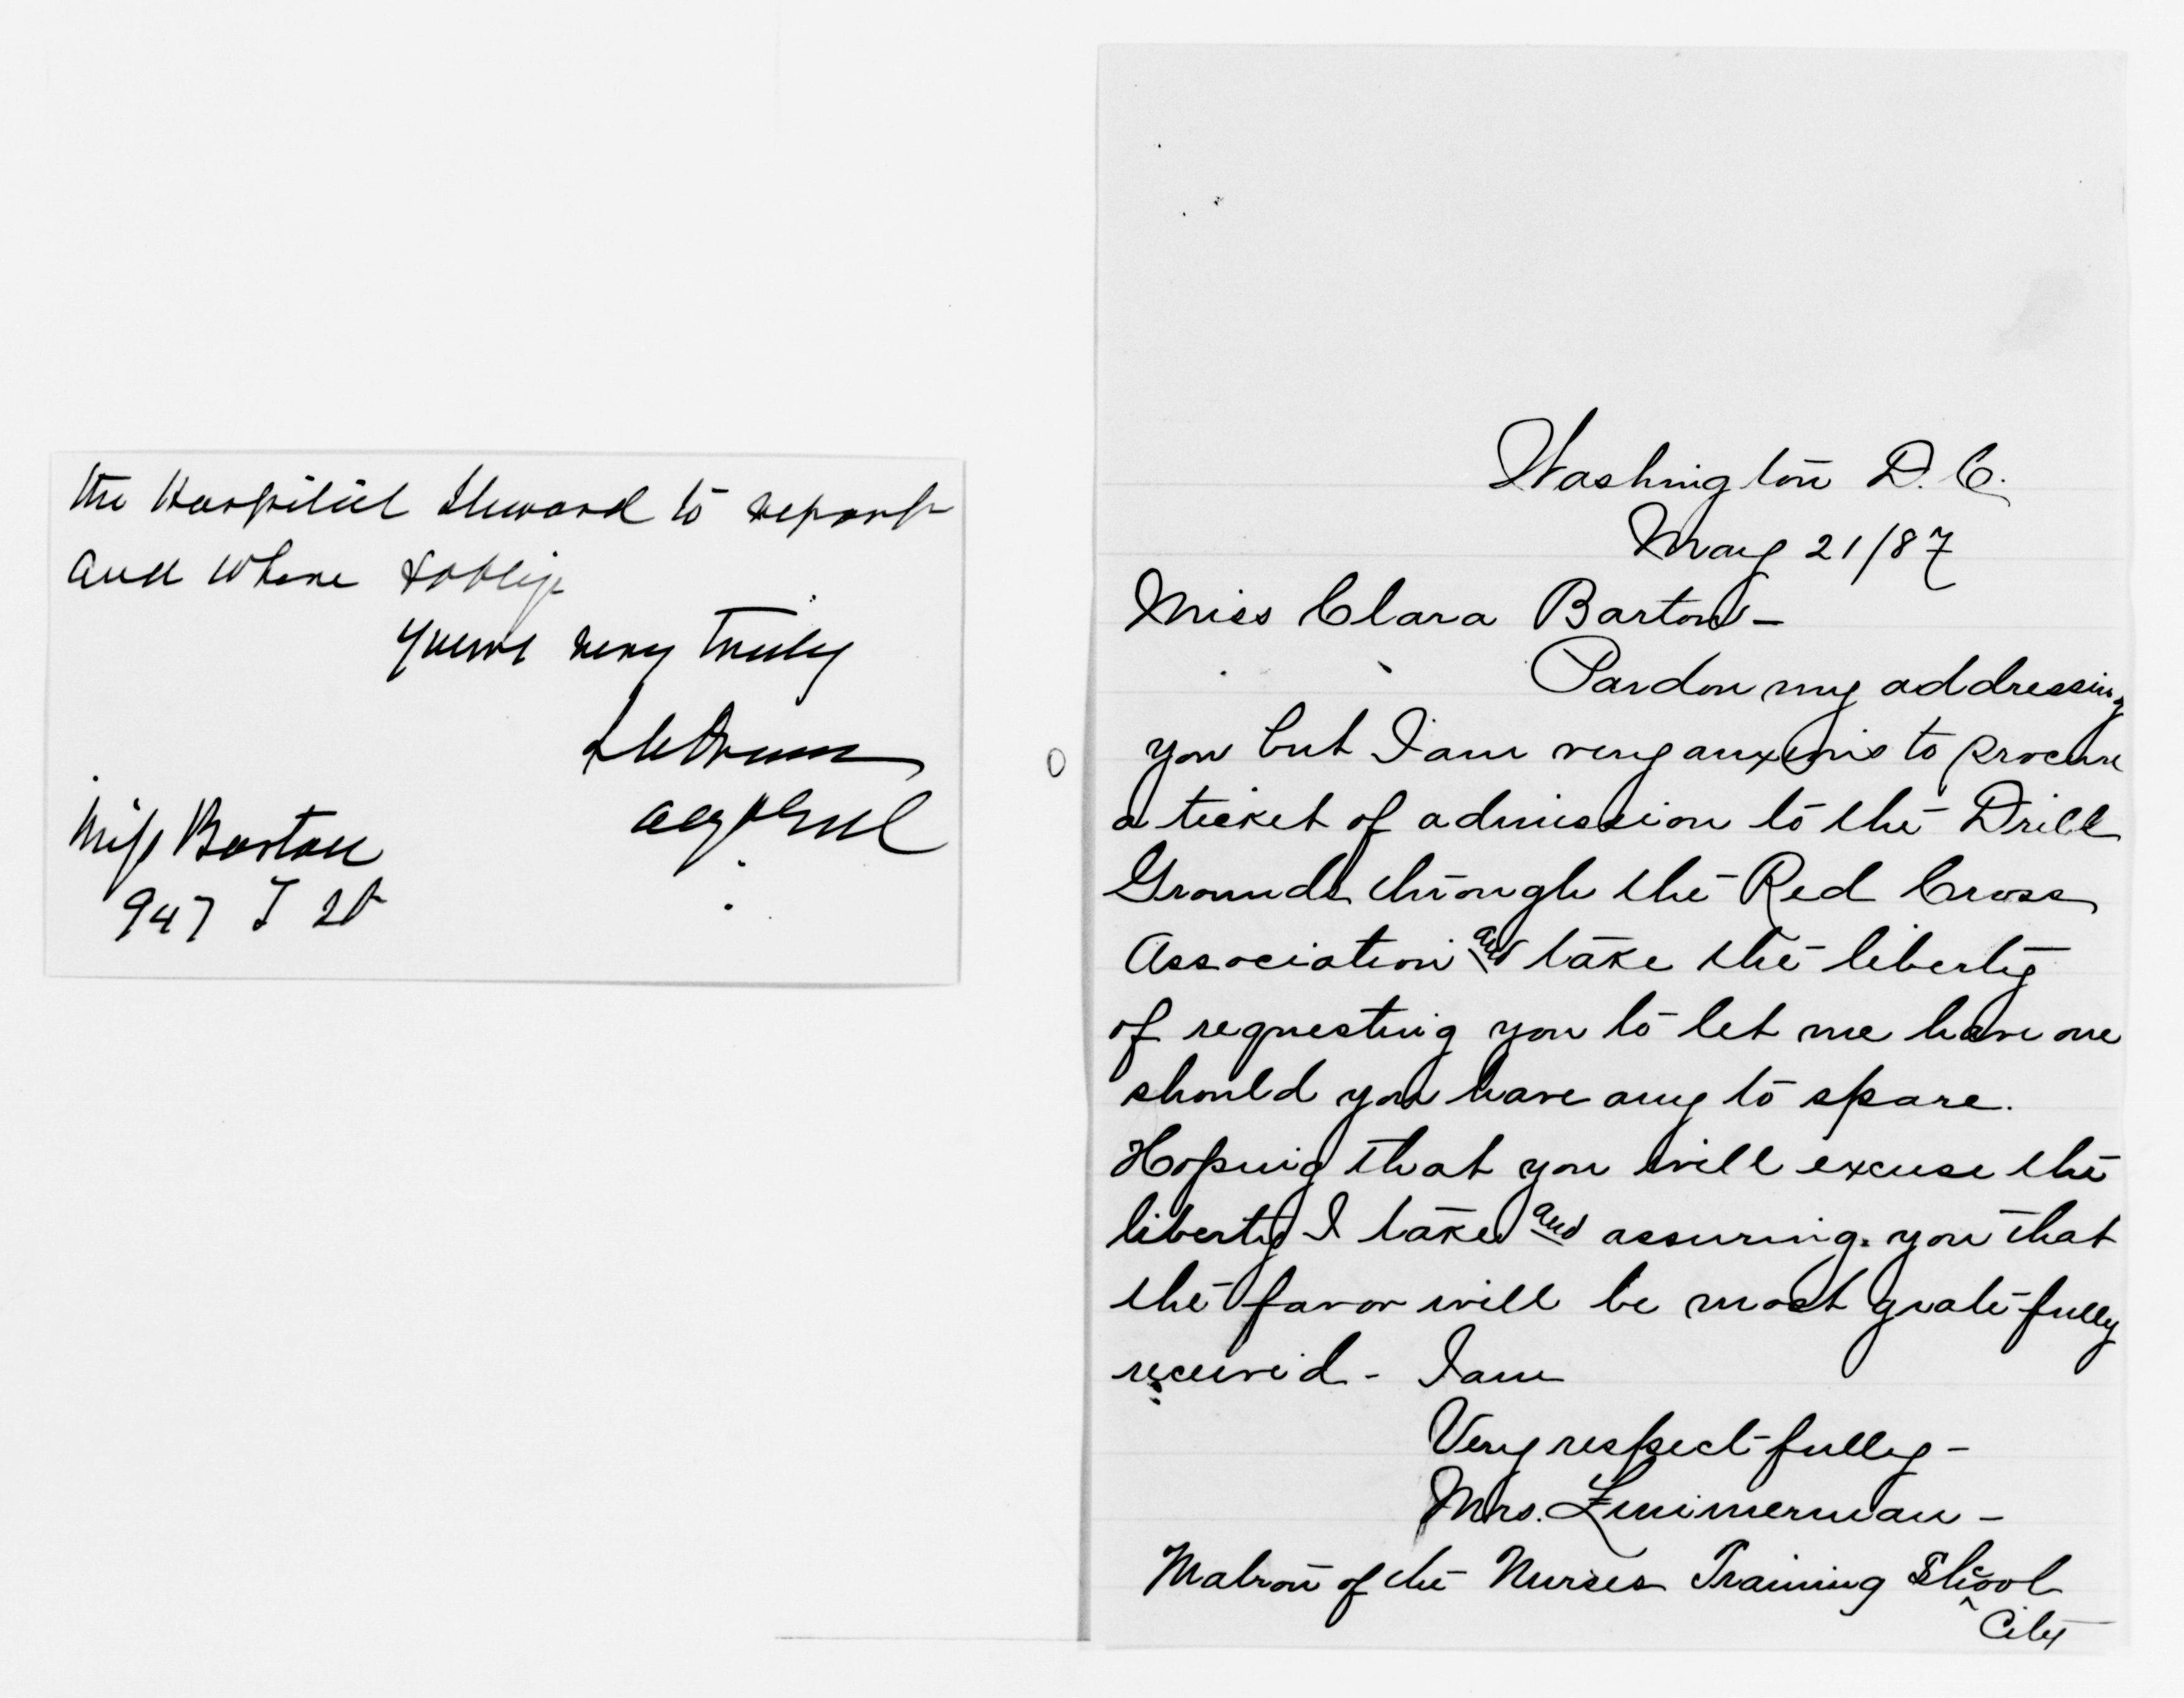 the Hospital Steward to report
and where & oblige
Yours very truly
Miss Barton
947 T St
Washington D.C.
May 21/87
Miss Clara Barton -
Pardon my addressing
you but I am very anxious to procure
a ticket of admission to the Drill
Grounds through the Red Cross
Association and take the liberty
of requesting you to let me have one
should you have any to spare.
Hoping that you will excuse the
liberty I take and assuring you that
the favor will be most gratefully
received - I am
Very respectfully -
Mrs. Zimmerman -
Matron of the Nurses Training School
City